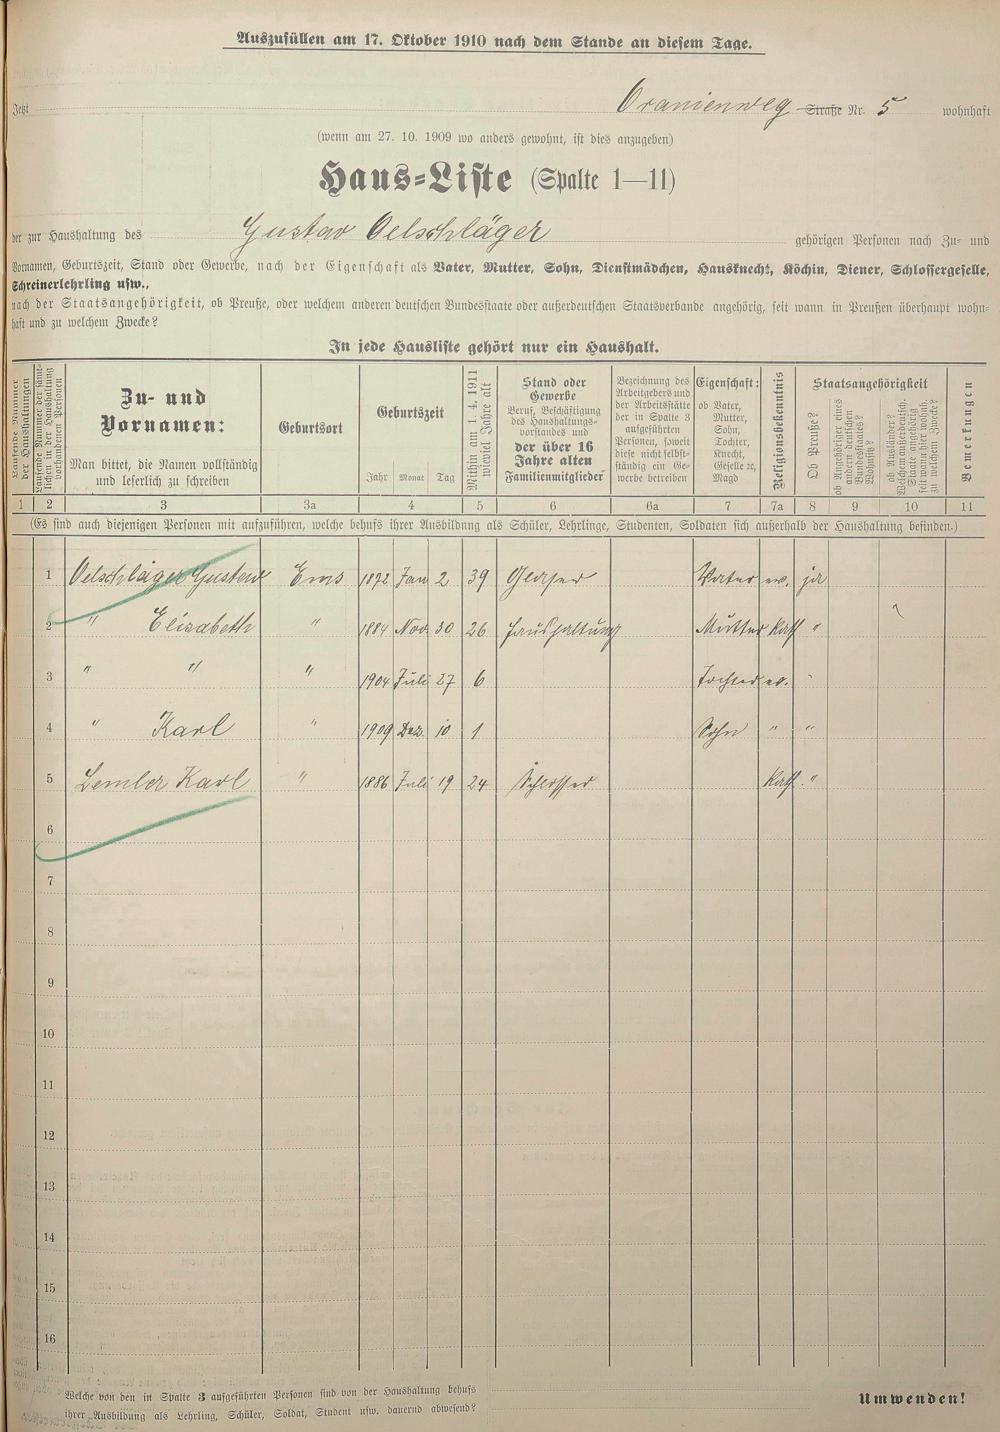 Auszufüllen am 17. Oktober 1910 nach dem Stande an diesem Tage.
Jetzt Oranienweg Straße Nr. 5 wohnhaft
(wenn am 27. 10. 1909 wo anders gewohnt, ist dies anzugeben)
Haus-Liste (Spalte 1—11)
der zur Haushaltung des Gustav Oelschläger gehörigen Personen nach Zu- und
Vornamen, Geburtszeit, Stand oder Gewerbe, nach der Eigenschaft als Vater, Mutter, Sohn, Dienstmädchen, Hausknecht, Köchin, Diener, Schlossergeselle,
Schreinerlehrling usw.,
nach der Staatsangehörigkeit, ob Preuße, oder welchem anderen deutschen Bundesstaate oder außerdeutschen Staatsverbande angehörig, seit wann in Preußen überhaupt wohn-
haft und zu welchem Zwecke?
In jede Hausliste gehört nur ein Haushalt.
Laufende Nummer der Haushaltungen
Laufende Nummer der sämt-
lichen in der Haushaltung
vorhandenen Personen
Zu- und
Vornamen:
Man bittet, die Namen vollständig
und leserlich zu schreiben
Geburtsort
Geburtszeit
Jahr Monat Tag
Mithin am 1. 4. 1911
wieviel Jahre alt
Stand oder
Gewerbe
Beruf, Beschäftigung
des Haushaltungs-
vorstandes und
der über 16
Jahre alten
Familienmitglieder
Bezeichnung des
Arbeitgebers und
der Arbeitsstätte
der in Spalte 3
aufgeführten
Personen, soweit
diese nicht selbst-
ständig ein Ge-
werbe betreiben
Eigenschaft:
ob Vater,
Mutter,
Sohn,
Tochter,
Knecht,
Geselle ec,
Magd
Religionsbekenntnis
Staatsangehörigkeit
Ob Preuße?
ob Angehöriger eines
andern deutschen
Bundesstaates?
Wohnsitz?
ob Ausländer?
Welchem außerdeutsch.
Staate angehörig
seit wann hier wohnh.
zu welchem Zwecke?
Bemerkungen
1 2 3 3a 4 5 6 6a 7 7a 8 9 10 11
(Es sind auch diejenigen Personen mit aufzuführen, welche behufs ihrer Ausbildung als Schüler, Lehrlinge, Studenten, Soldaten sich außerhalb der Haushaltung befinden.)
1 Oelschläger Gustav Ems 1872 Jan 2 39 Glaser Vater ev. ja
2 " Elisabeth " 1884 Nov. 30 26 Haushaltung Mutter Kath "
3 " " " 1904 Juli 27 6 Tochter ev. "
4 " Karl " 1909 Dez. 10 1 Sohn " "
5 Lemler Karl " 1886 Juli 19 24 Schlosser Kath. "
6
7
8
9
10
11
12
13
14
15
16
Welche von den in Spalte 3 aufgeführten Personen sind von der Haushaltung behufs
ihrer Ausbildung als Lehrling, Schüler, Soldat, Student usw. dauernd abwesend?
Umwenden!